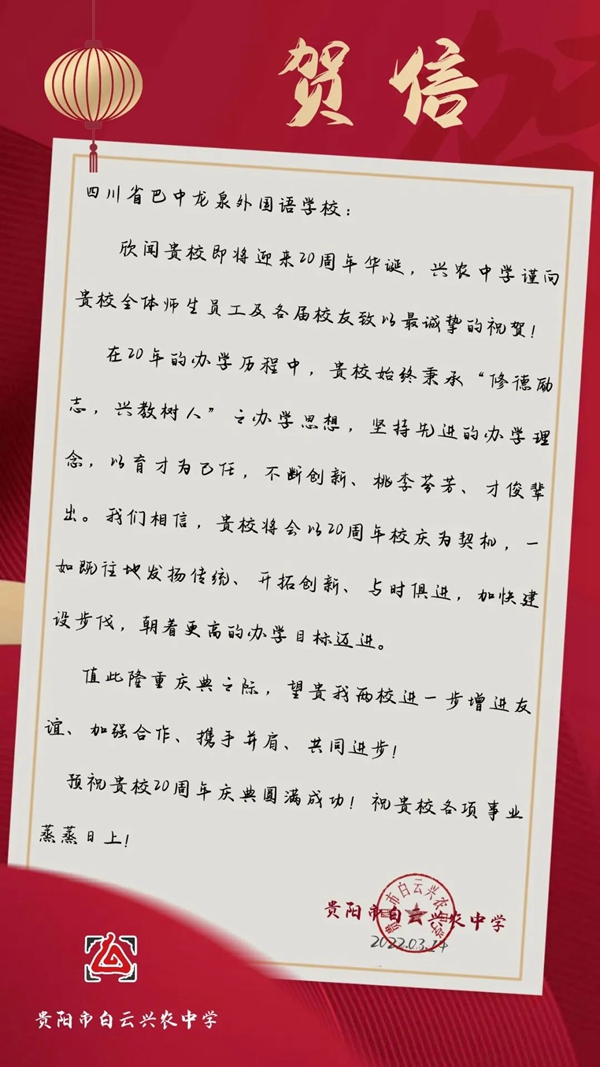 贺信
四川省巴中龙泉外国语学校：
欣闻贵校即将迎来20周年华诞，兴农中学谨向
贵校全体师生员工及各届校友致以最诚挚的祝贺！
在20年的办学历程中，贵校始终秉承“修德励
志，兴教树人”之办学思想，坚持先进的办学理
念，以育才为己任，不断创新、桃李芬芳、才俊辈
出。我们相信，贵校将会以20周年校庆为契机，一
如既往地发扬传统、开拓创新、与时俱进，加快建
设步伐，朝着更高的办学目标迈进。
值此隆重庆典之际，望贵我两校进一步增进友
谊、加强合作、携手并肩、共同进步！
预祝贵校20周年庆典圆满成功！祝贵校各项事业
蒸蒸日上！
贵阳市白云兴农中学
贵阳市白云兴农中学
2022.03.24
贵阳市白云兴农中学